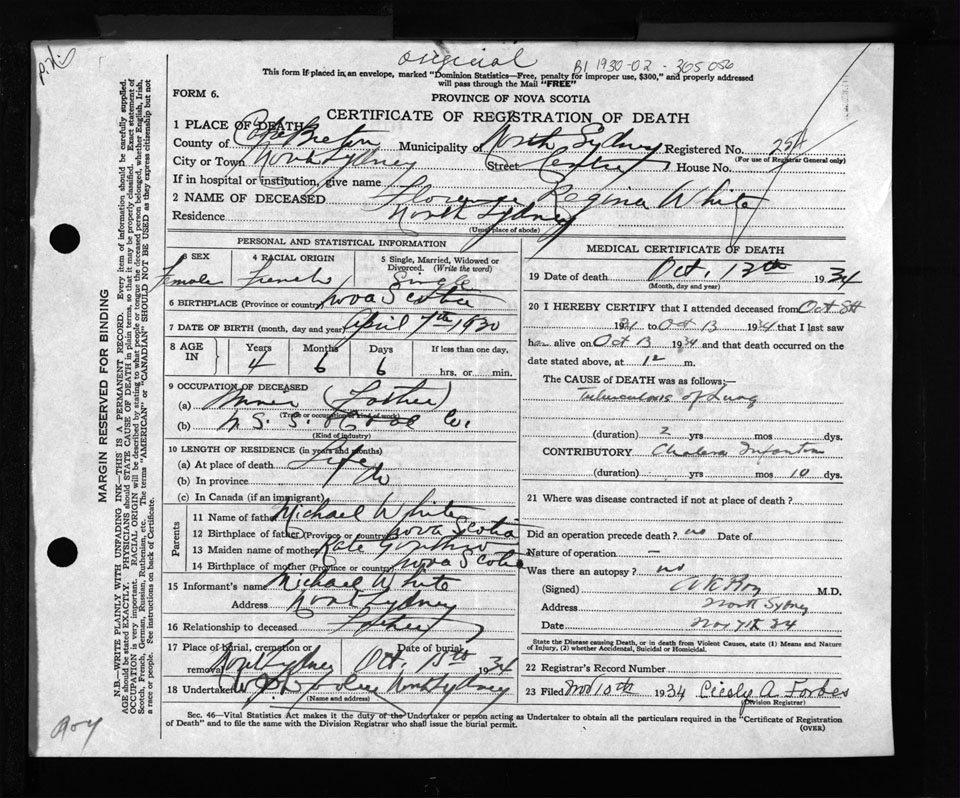 original
B1 1930-02-365056
This form if placed in an envelope, marked "Dominion Statistics—Free, penalty for improper use, $300," and properly addressed
will pass through the Mail "FREE"
FORM 6.
PROVINCE OF NOVA SCOTIA
CERTIFICATE OF REGISTRATION OF DEATH
1 PLACE OF DEATH
County of Cape Breton Municipality of North Sydney Registered No. 254
(For use of Registrar General only)
City or Town North Sydney Street House No.
If in hospital or institution, give name
2 NAME OF DECEASED Florence Regina White
Residence North Sydney
(Usual place of abode)
PERSONAL AND STATISTICAL INFORMATION
3 SEX 4 RACIAL ORIGIN 5 Single, Married, Widowed or Divorced. (Write the word)
Female French Single
6 BIRTHPLACE (Province or country) Nova Scotia
7 DATE OF BIRTH (month, day and year) April 7th 1930
8 AGE IN Years Months Days If less than one day,
4 6 6 hrs. or min.
9 OCCUPATION OF DECEASED
(a) Miner (Father)
(Trade or occupation or kind of work)
(b) N. S. S. & Coal Co.
(Kind of industry)
10 LENGTH OF RESIDENCE (in years and months)
(a) At place of death Life
(b) In province do
(c) In Canada (if an immigrant)
Parents
11 Name of father Michael White
12 Birthplace of father (Province or country) Nova Scotia
13 Maiden name of mother Kate
14 Birthplace of mother (Province or country) Nova Scotia
15 Informant's name Michael White
Address North Sydney
16 Relationship to deceased Father
17 Place of burial, cremation or removal Date of burial
North Sydney Oct. 15th 1934
18 Undertaker North Sydney
(Name and address)
MEDICAL CERTIFICATE OF DEATH
19 Date of death Oct. 13th 1934
(Month, day and year)
20 I HEREBY CERTIFY that I attended deceased from Oct 8th
1934 to Oct 13 1934 that I last saw
her alive on Oct 13 1934 and that death occurred on the
date stated above, at 12 m.
The CAUSE of DEATH was as follows:—
Tuberculosis of Lung
(duration) 2 yrs mos dys.
CONTRIBUTORY Cholera Infantum
(duration) yrs mos 10 dys.
21 Where was disease contracted if not at place of death?
Did an operation precede death? no Date of
Nature of operation —
Was there an autopsy? no
(Signed) M.D.
Address North Sydney
Date Nov 7th 34
State the Disease causing Death, or in death from Violent Causes, state (1) Means and Nature of Injury, (2) whether Accidental, Suicidal or Homicidal.
22 Registrar's Record Number
23 Filed Nov 10th 1934 Cicely A. Forbes
(Division Registrar)
Sec. 46—Vital Statistics Act makes it the duty of the Undertaker or person acting as Undertaker to obtain all the particulars required in the "Certificate of Registration
of Death" and to file the same with the Division Registrar who shall issue the burial permit.
(OVER)
MARGIN RESERVED FOR BINDING
N.B.—WRITE PLAINLY WITH UNFADING INK—THIS IS A PERMANENT RECORD. Every item of information should be carefully supplied.
AGE should be stated EXACTLY. PHYSICIANS should STATE CAUSE OF DEATH in plain terms, so that it may be properly classified. Exact statement of
OCCUPATION is very important. RACIAL ORIGIN will be described by stating to what people or tongue the deceased person belonged, whether English, Irish,
Scotch, French, German, Russian, Ruthenian, etc. The terms "AMERICAN" or "CANADIAN" SHOULD NOT BE USED as they express citizenship but not
a race or people. See instructions on back of Certificate.
Roy